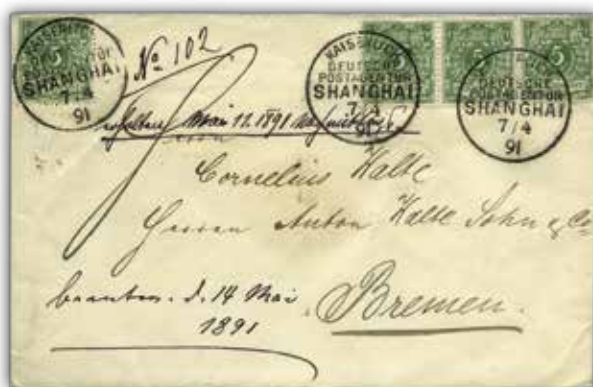 KAISERLICH
DEUTSCHE
POSTAGENTUR
SHANGHAI
7/4
91
5
No 102
KAISERLICH
DEUTSCHE
POSTAGENTUR
SHANGHAI
7/4
91
5
DEUTSCHE
POSTAGENTUR
SHANGHAI
7/4
91
5
erhalten Mai 12. 1891
Herrn
Cornelius Kalte
Herren Anton Kalte Sohn & Co
beantw. d. 14 Mai
1891
Bremen.